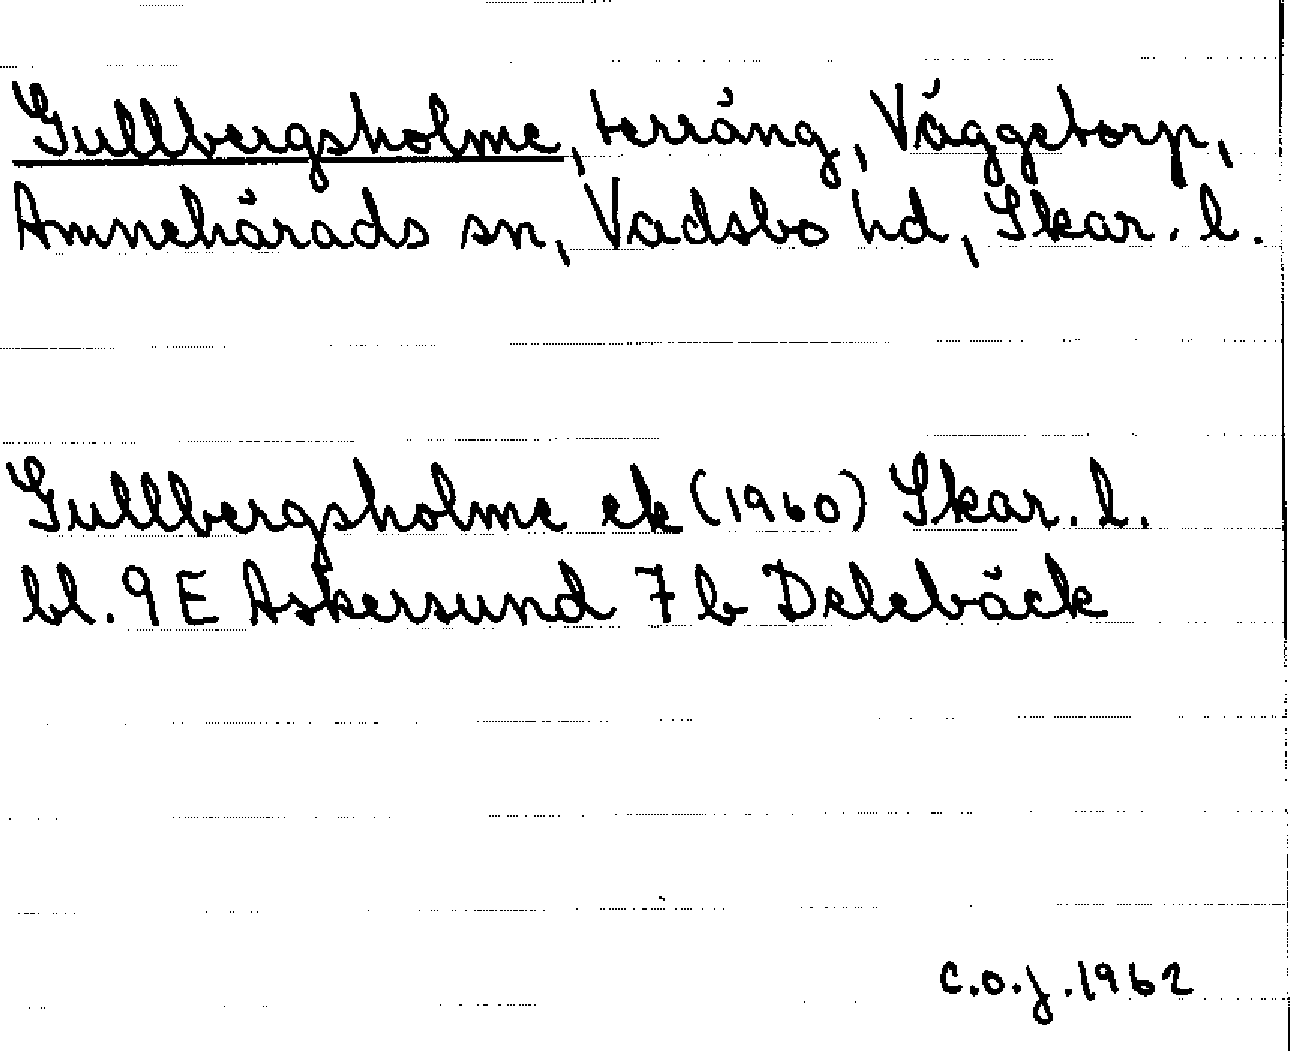 Gullbergsholme, terräng, Väggetorp,
Amnehärads sn, Vadsbo hd, Skar. l.
Gullbergsholme ek (1960) Skar. l.
bl. 9E Askersund 7 b Delebäck
C.O.J. 1962